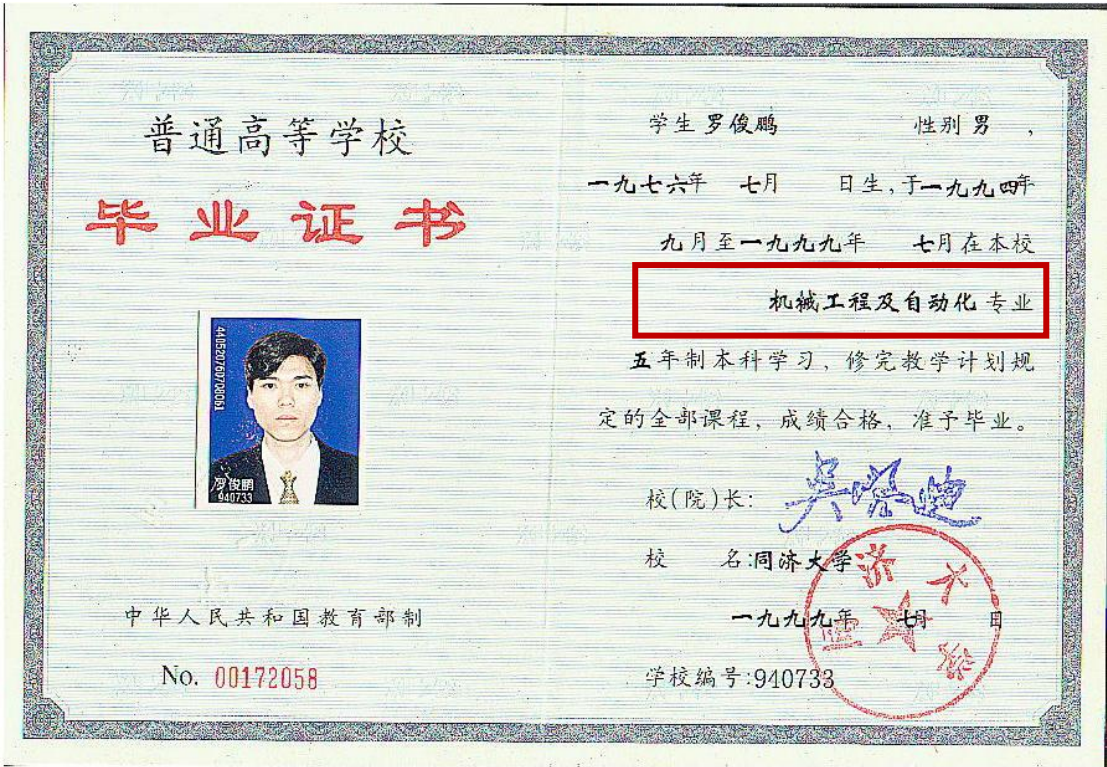 普通高等学校
毕业证书
440520760708061
罗俊鹏
940733
中华人民共和国教育部制
No. 00172058
学生 罗俊鹏 性别 男 ,
一九七六年 七月 日生,于一九九四年
九月至一九九九年 七月在本校
机械工程及自动化 专业
五年制本科学习,修完教学计划规
定的全部课程,成绩合格,准予毕业。
校(院)长: 吴启迪
校 名:同济大学
同济大学
一九九九年 七月 日
学校编号:940733